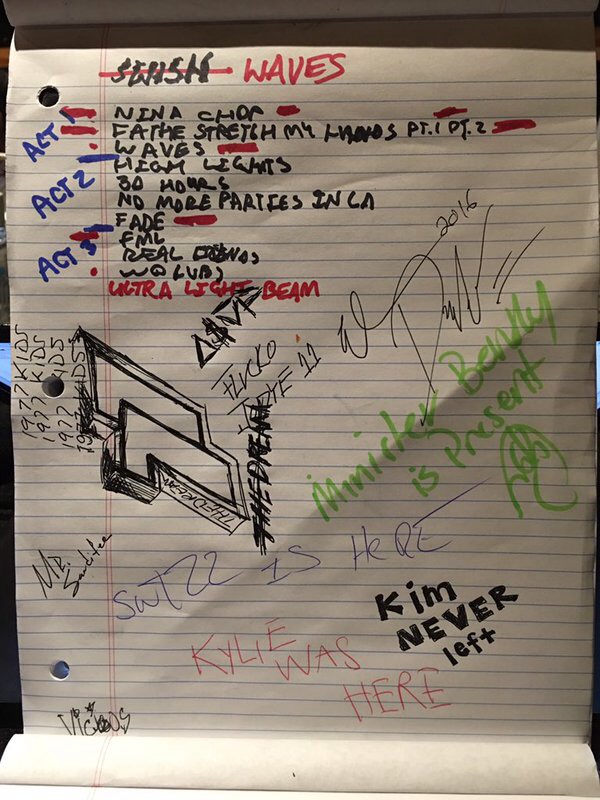 SWISH WAVES
ACT 1
NINA CHOP
FATHE STRETCH MY HANDS PT.1 PT.2
WAVES
ACT 2
HIGH LIGHTS
30 HOURS
NO MORE PARTIES IN LA
ACT 3
FADE
FML
REAL FRIENDS
WOLVES
ULTRA LIGHT BEAM
2016
1977 KIDS
1977 KIDS
1977 KIDS
1977 KIDS
A$AVE
FLACKO
JODYE 11
THEDREAM
THEDREAM
Minister Bently
is Present
SWIZZ IS HERE
Kim
NEVER
left
KYLIE
WAS
HERE
MR.
Vicious